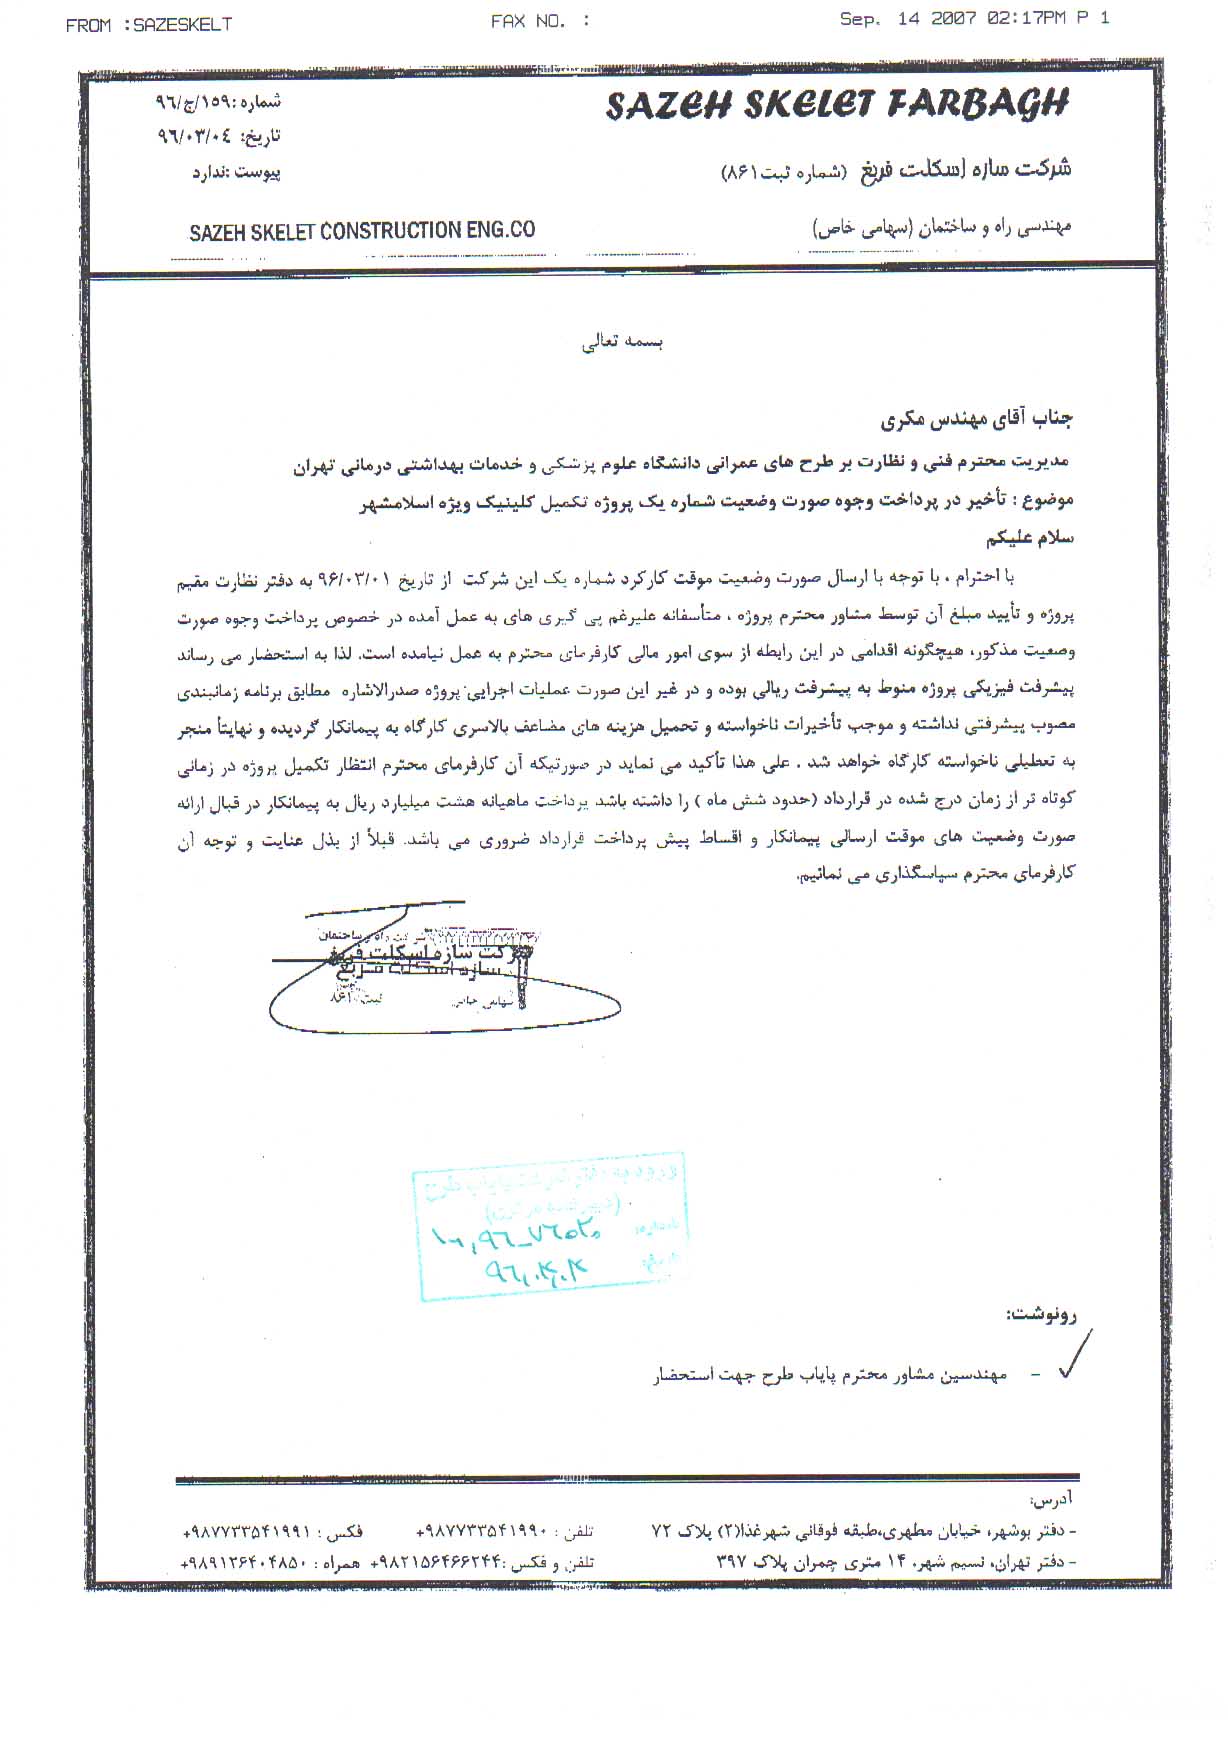 FROM :SAZESKELT FAX NO. : Sep. 14 2007 02:17PM P 1
SAZEH SKELET FARBAGH
شماره :۱۵۹/ج/۹۶
تاریخ: ۹۶/۰۳/۰۴
شرکت سازه اسکلت فربغ (شماره ثبت ۸۶۱)
پیوست :ندارد
مهندسی راه و ساختمان (سهامی خاص)
SAZEH SKELET CONSTRUCTION ENG.CO
بسمه تعالی
جناب آقای مهندس مکری
مدیریت محترم فنی و نظارت بر طرح های عمرانی دانشگاه علوم پزشکی و خدمات بهداشتی درمانی تهران
موضوع : تأخیر در پرداخت وجوه صورت وضعیت شماره یک پروژه تکمیل کلینیک ویژه اسلامشهر
سلام علیکم
با احترام ، با توجه با ارسال صورت وضعیت موقت کارکرد شماره یک این شرکت از تاریخ ۹۶/۰۳/۰۱ به دفتر نظارت مقیم
پروژه و تأیید مبلغ آن توسط مشاور محترم پروژه ، متأسفانه علیرغم پی گیری های به عمل آمده در خصوص پرداخت وجوه صورت
وضعیت مذکور، هیچگونه اقدامی در این رابطه از سوی امور مالی کارفرمای محترم به عمل نیامده است. لذا به استحضار می رساند
پیشرفت فیزیکی پروژه منوط به پیشرفت ریالی بوده و در غیر این صورت عملیات اجرایی پروژه صدرالاشاره مطابق برنامه زمانبندی
مصوب پیشرفتی نداشته و موجب تأخیرات ناخواسته و تحمیل هزینه های مضاعف بالاسری کارگاه به پیمانکار گردیده و نهایتاً منجر
به تعطیلی ناخواسته کارگاه خواهد شد . علی هذا تأکید می نماید در صورتیکه آن کارفرمای محترم انتظار تکمیل پروژه در زمانی
کوتاه تر از زمان درج شده در قرارداد (حدود شش ماه ) را داشته باشد پرداخت ماهیانه هشت میلیارد ریال به پیمانکار در قبال ارائه
صورت وضعیت های موقت ارسالی پیمانکار و اقساط پیش پرداخت قرارداد ضروری می باشد. قبلاً از بذل عنایت و توجه آن
کارفرمای محترم سپاسگذاری می نمائیم.
شرکت راه و ساختمان
شرکت سازه اسکلت فربغ
سازه اسکلت فربغ
سهامی خاص ثبت ۸۶۱
ورود به دفتر شرکت پایاب طرح
شماره:
تاریخ: ۹۶,۰۳,۰۴
رونوشت:
- مهندسین مشاور محترم پایاب طرح جهت استحضار
آدرس:
- دفتر بوشهر، خیابان مطهری،طبقه فوقانی شهرغذا(۲) پلاک ۷۲ تلفن : ۹۸۷۷۳۳۵۴۱۹۹۰+ فکس : ۹۸۷۷۳۳۵۴۱۹۹۱+
- دفتر تهران، نسیم شهر، ۱۴ متری چمران پلاک ۳۹۷ تلفن و فکس :۹۸۲۱۵۶۴۶۶۲۴۴+ همراه : ۹۸۹۱۲۶۴۰۴۸۵۰+